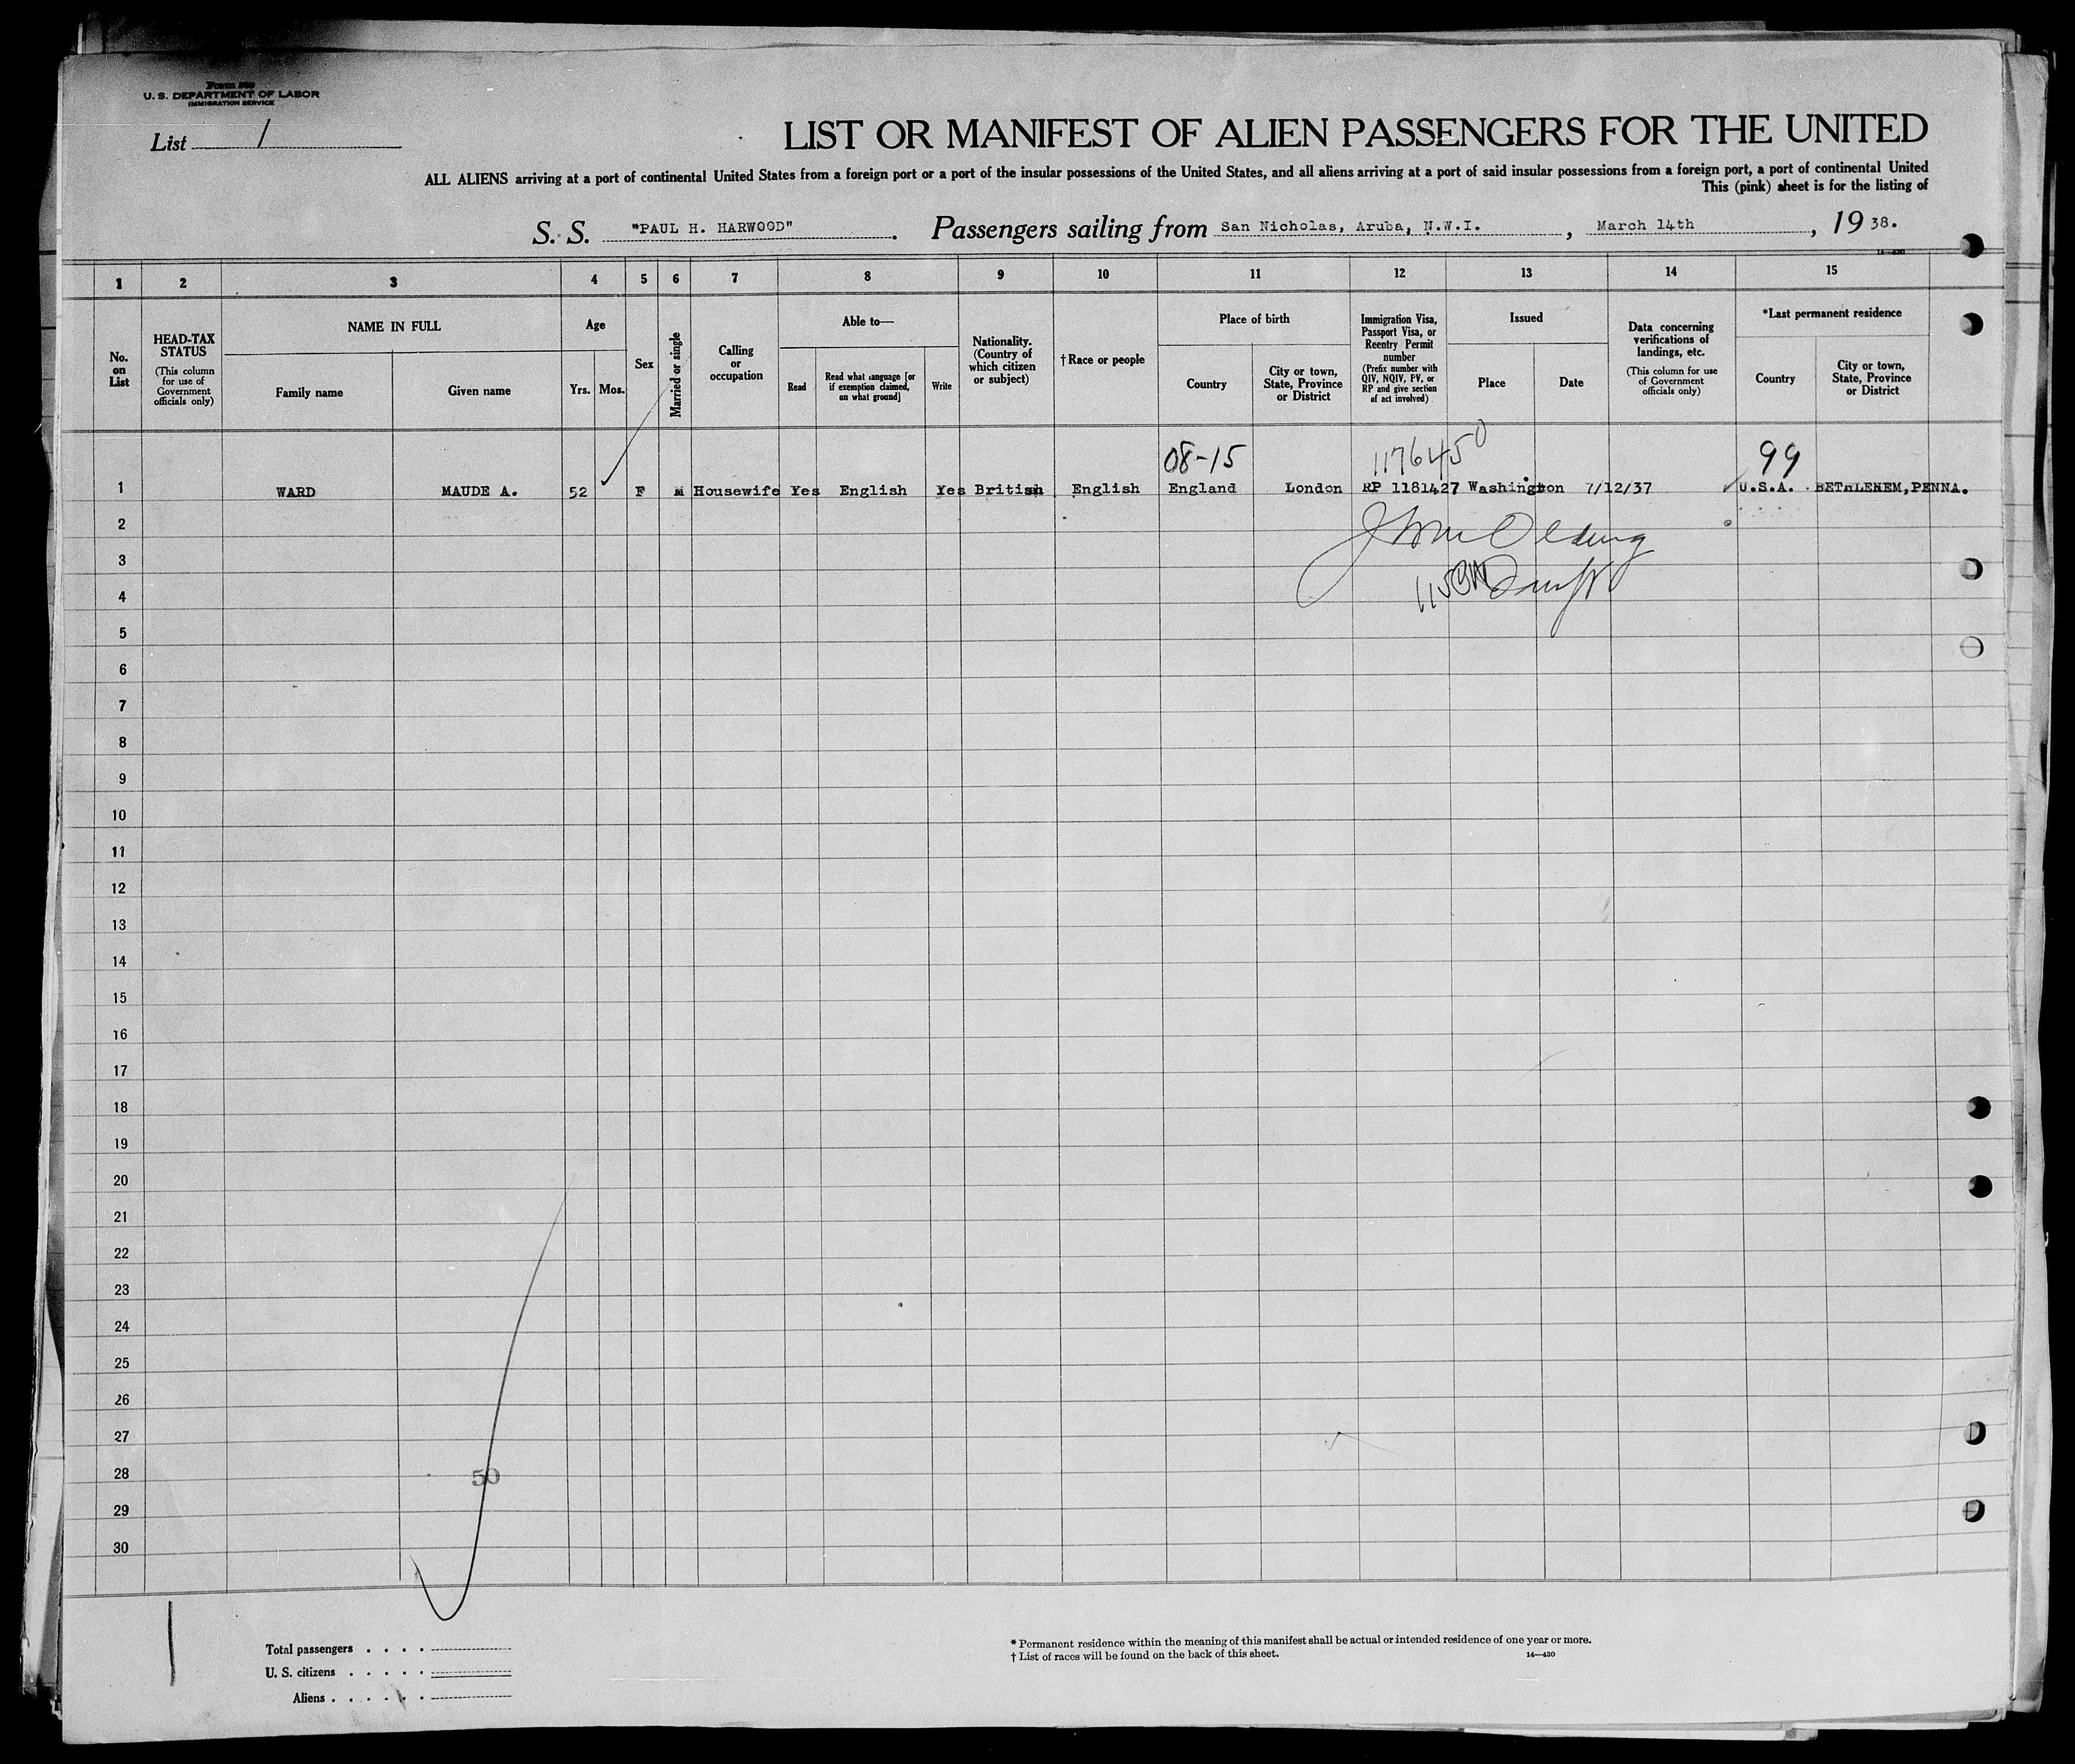 Form 500
U. S. DEPARTMENT OF LABOR
IMMIGRATION SERVICE
List 1
LIST OR MANIFEST OF ALIEN PASSENGERS FOR THE UNITED
ALL ALIENS arriving at a port of continental United States from a foreign port or a port of the insular possessions of the United States, and all aliens arriving at a port of said insular possessions from a foreign port, a port of continental United
This (pink) sheet is for the listing of
S. S. "PAUL H. HARWOOD". Passengers sailing from San Nicholas, Aruba, N.W.I., March 14th, 19 38.
14—430
1 2 3 4 5 6 7 8 9 10 11 12 13 14 15
No. on List
HEAD-TAX STATUS
(This column for use of Government officials only)
NAME IN FULL
Family name
Given name
Age
Yrs. Mos.
Sex
Married or single
Calling or occupation
Able to—
Read
Read what language [or if exemption claimed, on what ground]
Write
Nationality. (Country of which citizen or subject)
†Race or people
Place of birth
Country
City or town, State, Province or District
Immigration Visa, Passport Visa, or Reentry Permit number
(Prefix number with QIV, NQIV, PV, or RP and give section of act involved)
Issued
Place
Date
Data concerning verifications of landings, etc.
(This column for use of Government officials only)
*Last permanent residence
Country
City or town, State, Province or District
08-15 1176450 99
1 WARD MAUDE A. 52 F M Housewife Yes English Yes British English England London RP 1181427 Washington 7/12/37 U.S.A. BETHLEHEM, PENNA.
2
3
4
5
6
7
8
9
10
11
12
13
14
15
16
17
18
19
20
21
22
23
24
25
26
27
28 50
29
30
Total passengers . . . .
U. S. citizens . . . . .
Aliens . . . . . .
* Permanent residence within the meaning of this manifest shall be actual or intended residence of one year or more.
† List of races will be found on the back of this sheet.
14—430